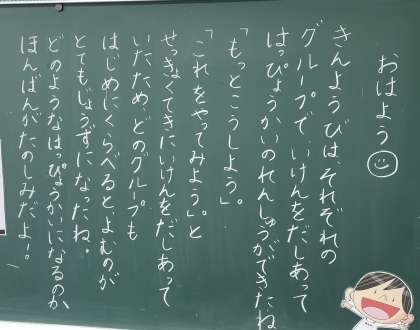 おはよう
きんようびは、それぞれの
グループで、いけんをだしあって
はっぴょうかいのれんしゅうができたね。
「もっとこうしよう。」
「これをやってみよう。」と
せっきょくてきにいけんをだしあって
いたため、どのグループも
はじめにくらべるとよむのが
とてもじょうずになったね。
どのようなはっぴょうかいになるのか、
ほんばんがたのしみだよ！。